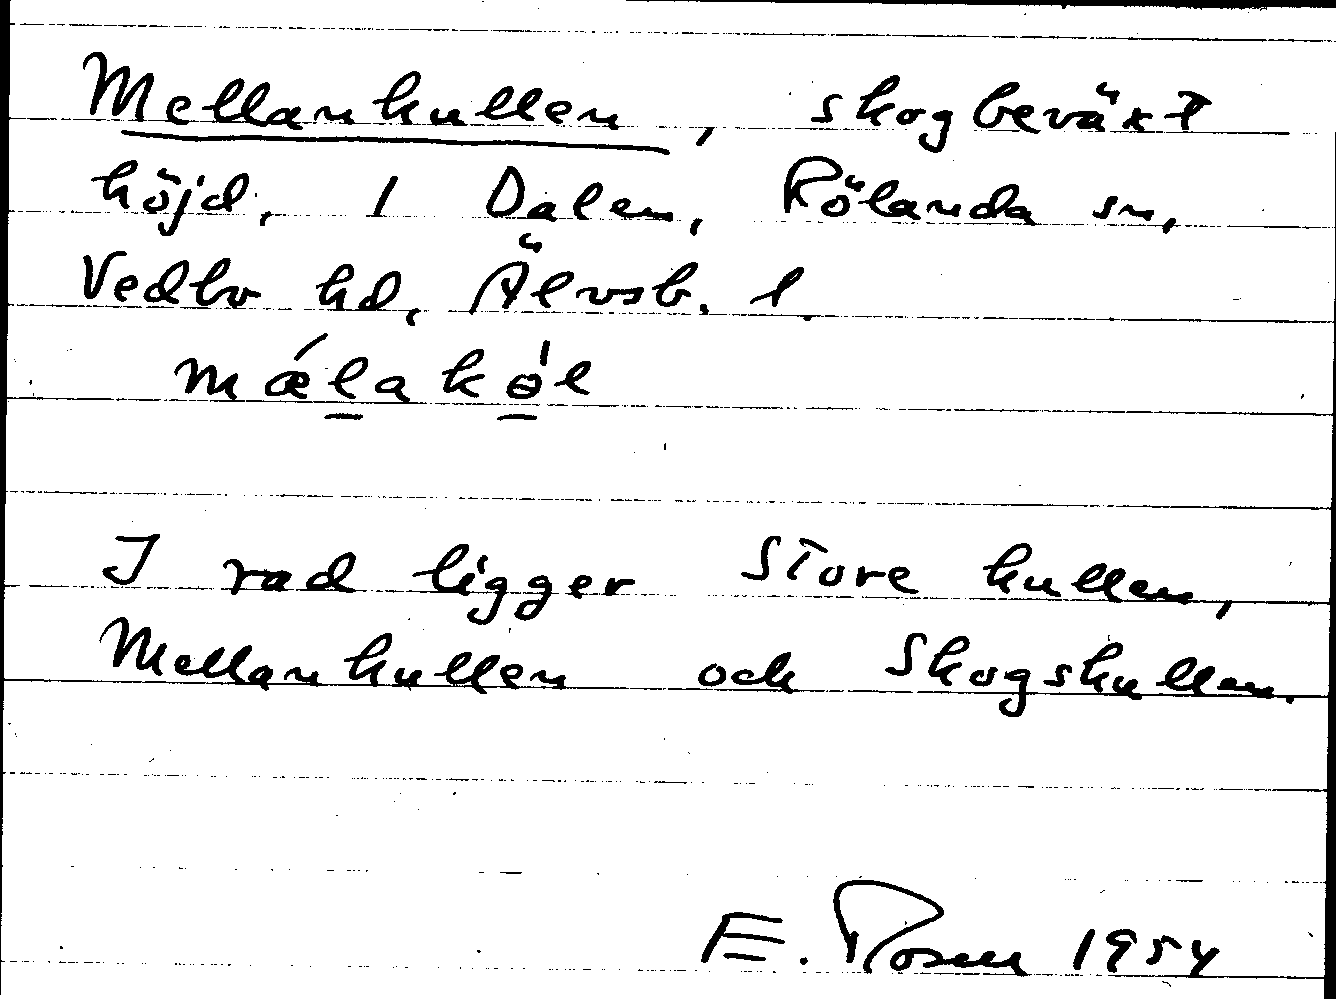 Mellankullen, skogbeväxt
höjd, 1 Dalen, Rölanda sn,
Vedbo hd, Älvsb. l.
mǽl̲akɵ̲́l
I rad ligger Store kullen,
Mellankullen och Skogskullen.
E. Rosen 1954